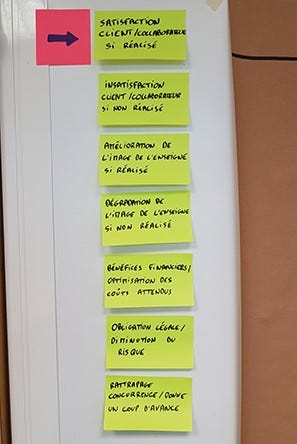 SATISFACTION
CLIENT/COLLABORATEUR
SI RÉALISÉ
INSATISFACTION
CLIENT/COLLABORATEUR
SI NON RÉALISÉ
AMÉLIORATION DE
L'IMAGE DE L'ENSEIGNE
SI RÉALISÉ
DÉGRADATION DE
L'IMAGE DE L'ENSEIGNE
SI NON RÉALISÉ
BÉNÉFICES FINANCIERS/
OPTIMISATION DES
COÛTS ATTENDUS
OBLIGATION LÉGALE/
DIMINUTION DU
RISQUE
RATTRAPAGE
CONCURRENCE/DONNE
UN COUP D'AVANCE